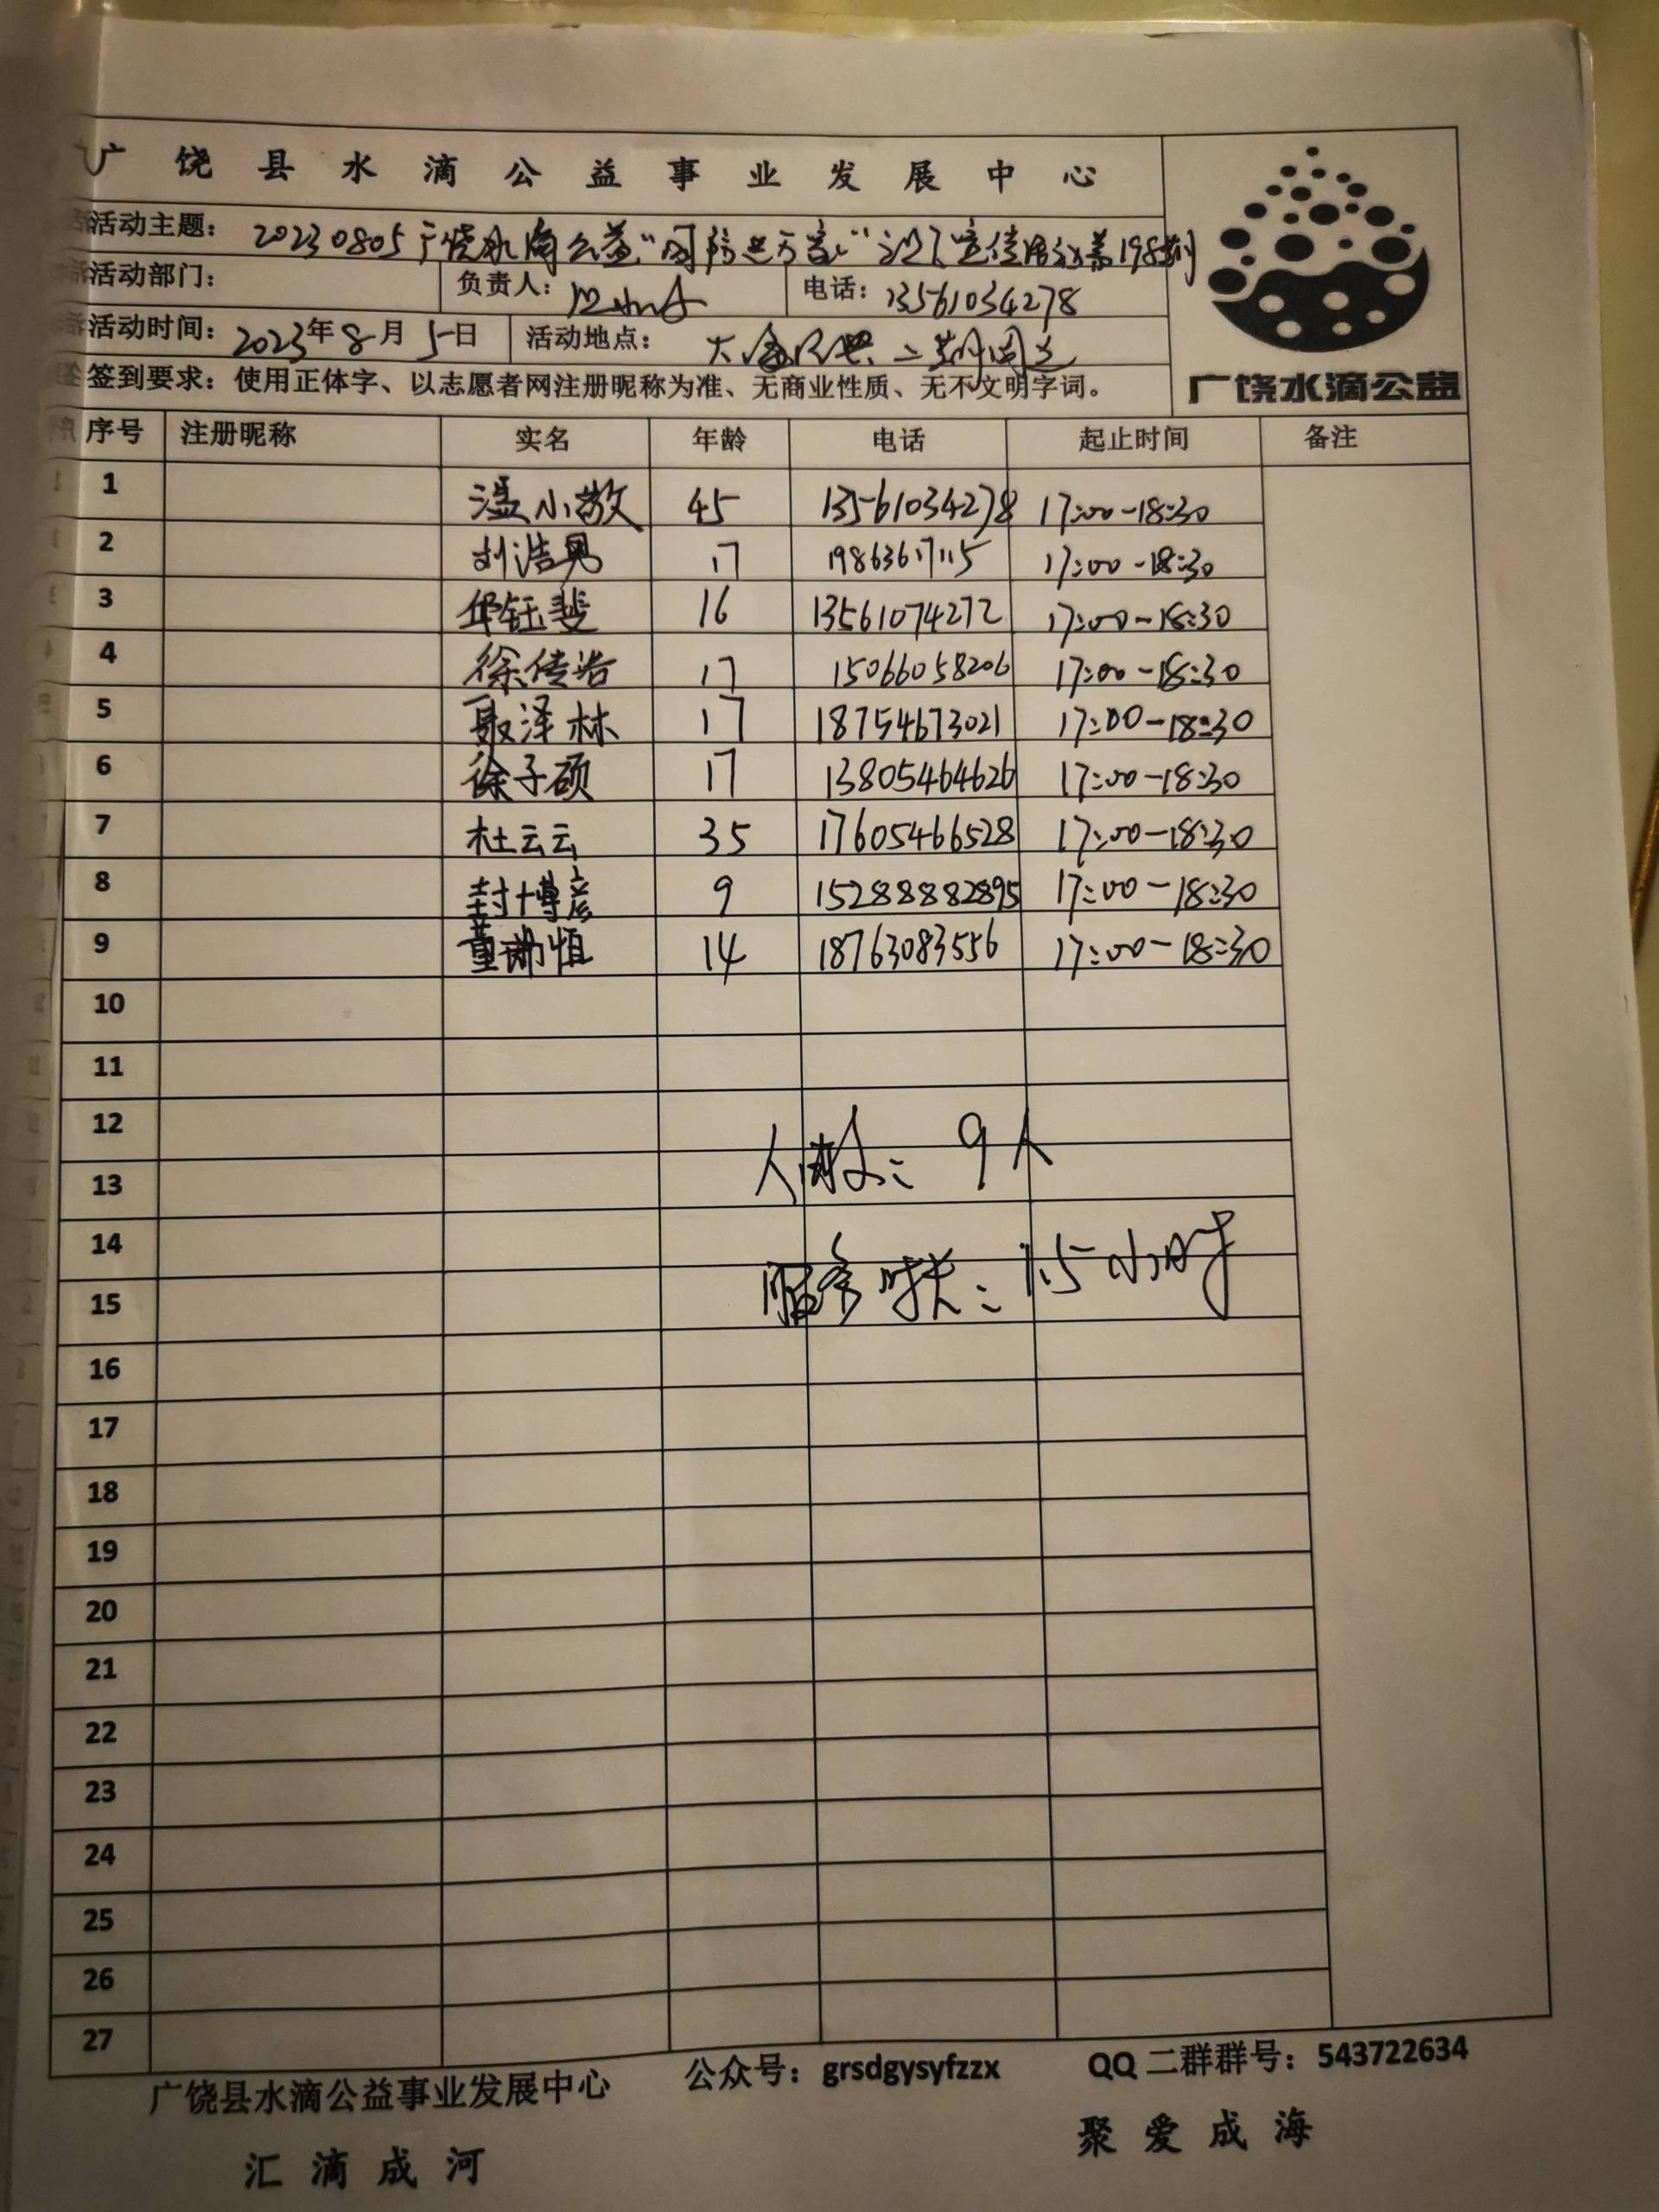 广饶县水滴公益事业发展中心
活动主题：20230805广饶水滴公益“国防进万家” 宣传活动第198期
活动部门： 负责人： 电话：13561034278
活动时间：2023年8月5日 活动地点： 二期周边
签到要求：使用正体字、以志愿者网注册昵称为准、无商业性质、无不文明字词。
广饶水滴公益
序号 注册昵称 实名 年龄 电话 起止时间 备注
1 温小敏 45 13561034278 17:00-18:30
2 刘浩男 17 19863617115 17:00-18:30
3 邱钰斐 16 13561074272 17:00-18:30
4 徐传浩 17 15066058206 17:00-18:30
5 聂泽林 17 18754673021 17:00-18:30
6 徐子硕 17 13805464626 17:00-18:30
7 杜云云 35 17605466528 17:00-18:30
8 封博彦 9 15288882895 17:00-18:30
9 董 恒 14 18763083556 17:00-18:30
10
11
12
人数：9人
13
14
服务时长：1.5小时
15
16
17
18
19
20
21
22
23
24
25
26
27
广饶县水滴公益事业发展中心 公众号：grsdgysyfzzx QQ二群群号：543722634
汇滴成河 聚爱成海